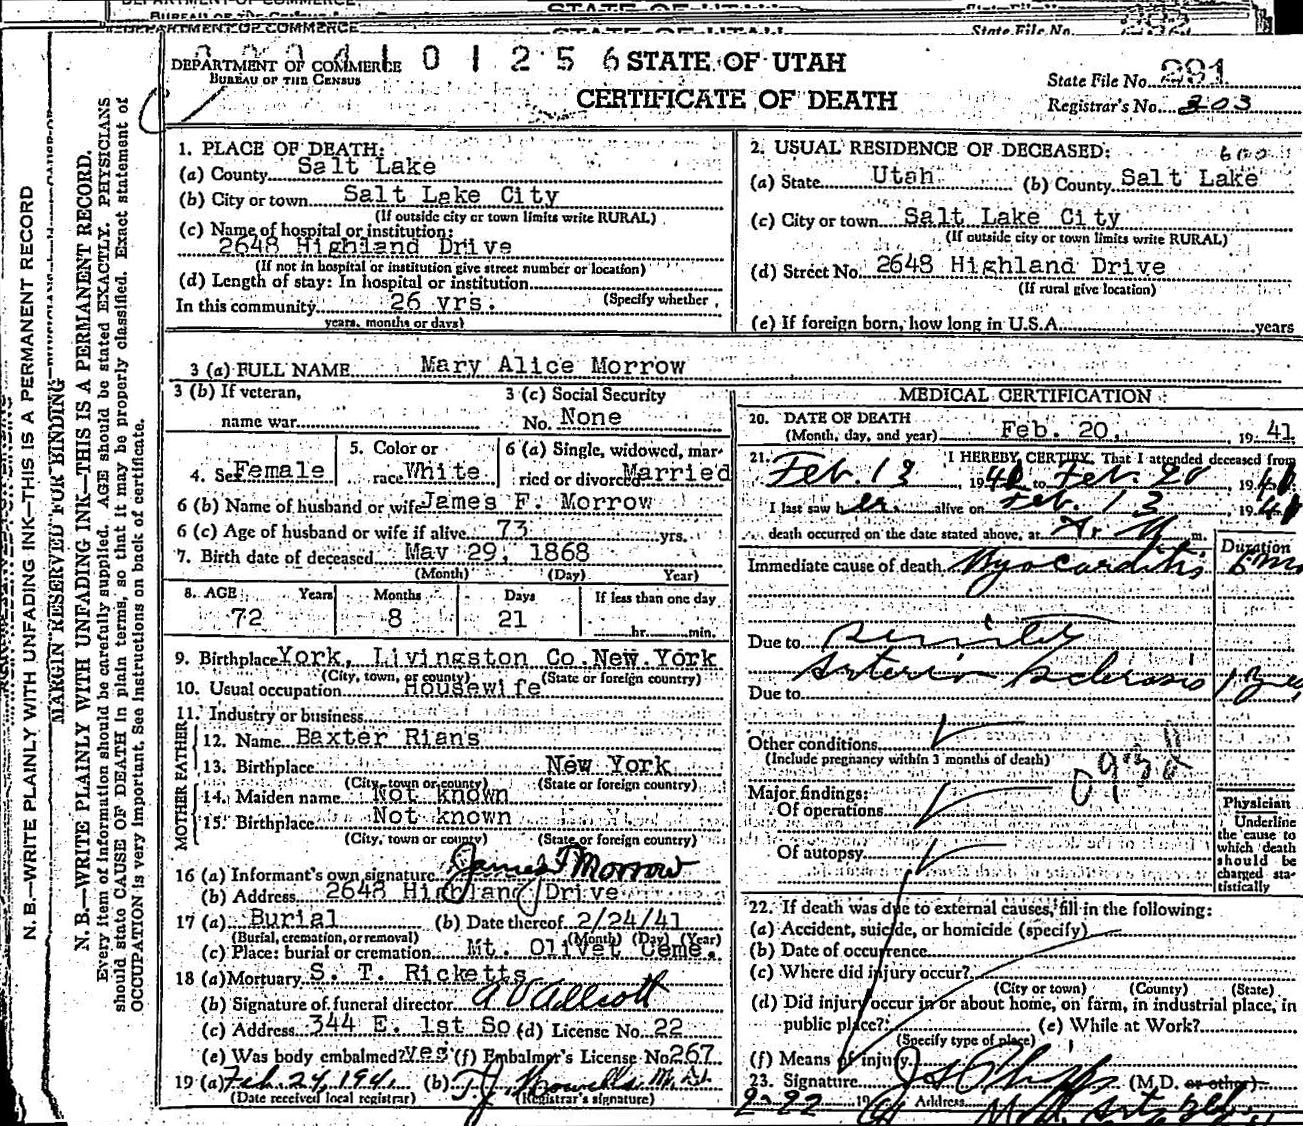 DEPARTMENT OF COMMERCE
BUREAU OF THE CENSUS
0 1 2 5 6
STATE OF UTAH
CERTIFICATE OF DEATH
State File No. 291
Registrar's No. 303
N. B.—WRITE PLAINLY WITH UNFADING INK—THIS IS A PERMANENT RECORD
MARGIN RESERVED FOR BINDING
N. B.—WRITE PLAINLY WITH UNFADING INK—THIS IS A PERMANENT RECORD.
Every item of information should be carefully supplied. AGE should be stated EXACTLY. PHYSICIANS
should state CAUSE OF DEATH in plain terms, so that it may be properly classified. Exact statement of
OCCUPATION is very important. See instructions on back of certificate.
1. PLACE OF DEATH:
(a) County Salt Lake
(b) City or town Salt Lake City
(If outside city or town limits write RURAL)
(c) Name of hospital or institution:
2648 Highland Drive
(If not in hospital or institution give street number or location)
(d) Length of stay: In hospital or institution
In this community 26 yrs. (Specify whether
years, months or days)
2. USUAL RESIDENCE OF DECEASED:
(a) State Utah (b) County Salt Lake
(c) City or town Salt Lake City
(If outside city or town limits write RURAL)
(d) Street No. 2648 Highland Drive
(If rural give location)
(e) If foreign born, how long in U.S.A. years
3 (a) FULL NAME Mary Alice Morrow
3 (b) If veteran,
name war
3 (c) Social Security
No. None
4. Sex Female
5. Color or
race White
6 (a) Single, widowed, mar-
ried or divorced Married
6 (b) Name of husband or wife James F. Morrow
6 (c) Age of husband or wife if alive 73 yrs.
7. Birth date of deceased May 29, 1868
(Month) (Day) Year)
8. AGE Years Months Days If less than one day
72 8 21 hr. min.
9. Birthplace York, Livingston Co. New York
(City, town, or county) (State or foreign country)
10. Usual occupation Housewife
11. Industry or business
FATHER
12. Name Baxter Rians
13. Birthplace New York
(City, town or county) (State or foreign country)
MOTHER
14. Maiden name Not known
15. Birthplace Not known
(City, town or county) (State or foreign country)
16 (a) Informant's own signature James F Morrow
(b) Address 2648 Highland Drive
17 (a) Burial (b) Date thereof 2/24/41
(Burial, cremation, or removal) (Month) (Day) (Year)
(c) Place: burial or cremation Mt. Olivet Ceme.
18 (a) Mortuary S. T. Ricketts
(b) Signature of funeral director
(c) Address 344 E. 1st So (d) License No. 22
(e) Was body embalmed? yes (f) Embalmer's License No 267
19 (a) Feb. 24, 1941 (b) T. J. Howells M.D.
(Date received local registrar) (Registrar's signature)
MEDICAL CERTIFICATION
20. DATE OF DEATH
(Month, day, and year) Feb. 20, 1941
21. I HEREBY CERTIFY, That I attended deceased from
Feb. 13, 1941 to Feb. 20, 1941
I last saw her alive on Feb. 13, 1941
death occurred on the date stated above, at m.
Duration
Immediate cause of death Myocarditis 6 mo
Due to Senility
Arterio Sclerosis
Due to
Other conditions
(Include pregnancy within 3 months of death)
Major findings:
Of operations
Of autopsy
Physician
Underline
the cause to
which death
should be
charged sta-
tistically
22. If death was due to external causes, fill in the following:
(a) Accident, suicide, or homicide (specify)
(b) Date of occurrence
(c) Where did injury occur?
(City or town) (County) (State)
(d) Did injury occur in or about home, on farm, in industrial place, in
public place? (e) While at Work?
(Specify type of place)
(f) Means of injury
23. Signature (M.D. or other)
2-22 19 41 Address